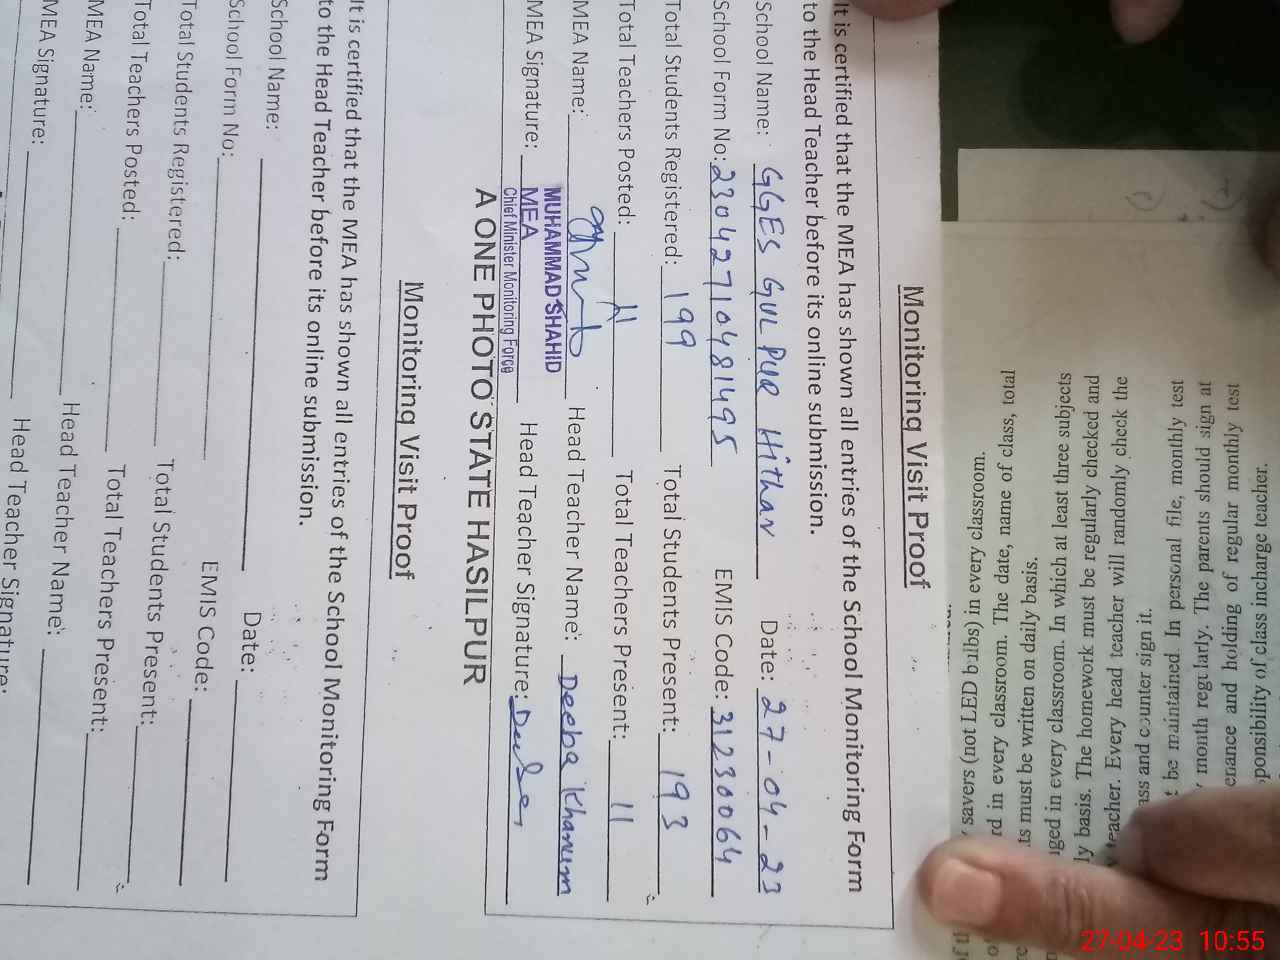 Monitoring Visit Proof
It is certified that the MEA has shown all entries of the School Monitoring Form
to the Head Teacher before its online submission.
School Name: GGES GUL PUR Hithar Date: 27-04-23
School Form No: 23042710481495 EMIS Code: 31230064
Total Students Registered: 199 Total Students Present: 193
Total Teachers Posted: 11 Total Teachers Present: 11
MEA Name: Head Teacher Name: Deeba Khanum
MUHAMMAD SHAHID
MEA Signature: MEA Head Teacher Signature:
Chief Minister Monitoring Force
A ONE PHOTO STATE HASILPUR
Monitoring Visit Proof
It is certified that the MEA has shown all entries of the School Monitoring Form
to the Head Teacher before its online submission.
School Name: Date:
School Form No: EMIS Code:
Total Students Registered: Total Students Present:
Total Teachers Posted: Total Teachers Present:
MEA Name: Head Teacher Name:
MEA Signature: Head Teacher Signature:
savers (not LED bulbs) in every classroom.
in every classroom. The date, name of class, total
must be written on daily basis.
in every classroom. In which at least three subjects
basis. The homework must be regularly checked and
teacher. Every head teacher will randomly check the
and counter sign it.
be maintained. In personal file, monthly test
month regularly. The parents should sign at
and holding of regular monthly test
of class incharge teacher.
27-04-23 10:55